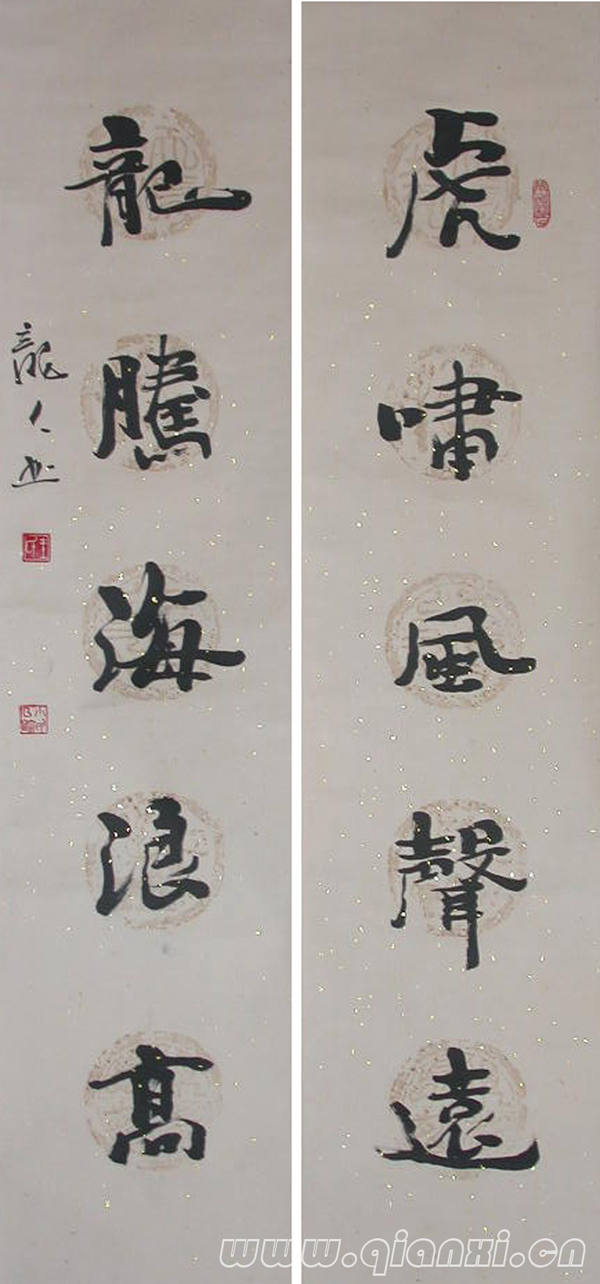 虎嘯風聲遠
龍騰海浪高
龍人书
www.qianxi.cn